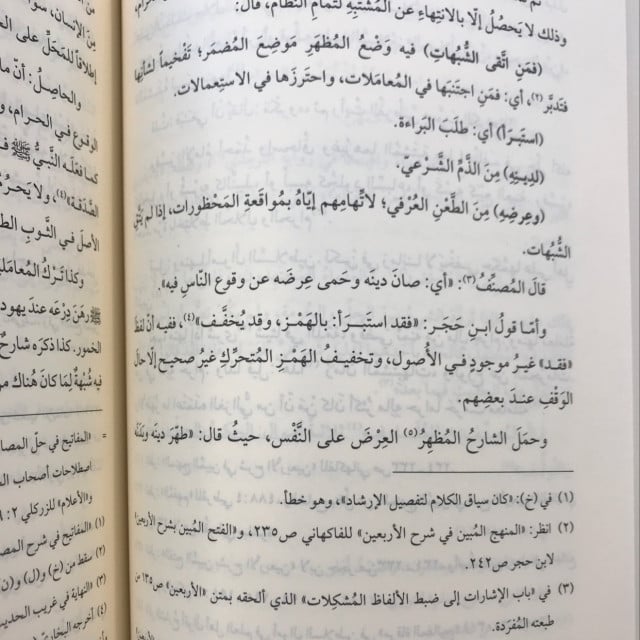 وذلك لا يَحصُلُ إلّا بالانتِهاءِ عن المُشتَبِهِ لتمامِ النِّظام، قالَ:
(فمَنِ اتَّقى الشُّبُهاتِ) فيه وَضعُ المُظهَرِ مَوضِعَ المُضمَر؛ تَفْخيماً لشأنِها
فتَدبَّر(٢)، أي: فمَنِ اجتَنبَها في المُعامَلات، واحتَرزَها في الاستِعمالات.
(استَبرَأ) أي: طلَبَ البَراءة.
(لدِينِهِ) مِنَ الذَّمِّ الشَّرعيِّ.
(وعِرضِهِ) مِنَ الطَّعْنِ العُرْفي؛ لاتِّهامِهم إيّاهُ بمُواقَعةِ المَحظُورات، إذا لم يتَّقِ
الشُّبُهات.
قالَ المُصنِّفُ(٣): «أي: صانَ دينَه وحَمى عِرضَه عن وقوعِ النّاسِ فيه».
وأمّا قولُ ابنِ حَجَر: «فقد استَبرَأ: بالهَمْز، وقد يُخفَّف»(٤)، ففيه أنّ لفظَ
«فقد» غيرُ موجودٍ في الأُصول، وتخفيفُ الهَمْزِ المُتحرِّكِ غيرُ صحيحٍ إلّا حالَ
الوَقْفِ عندَ بعضِهم.
وحمَلَ الشارحُ المُظهِرُ(٥) العِرْضَ على النَّفْس، حيثُ قال: «طهّرَ دينَه وبدَنَه
(١) في (خ): «كان سياق الكلام لتفصيل الإرشاد»، وهو خطأ.
(٢) انظر: «المنهج المُبين في شرح الأربعين» للفاكهاني ص٢٣٥، و«الفتح المُبين بشرح الأربعين»
لابن حجر ص٢٤٢.
(٣) في «باب الإشارات إلى ضبط الألفاظ المُشكِلات» الذي ألحقه بمتن «الأربعين» ص١٣٥ من
طبعته المُفرَدة.
مِنَ الإنسان،
إطلاقاً للمَحَلِّ على
والحاصِلُ: أنّ
الوقوعِ في الحرام،
كما فعَلَه النَّبيُّ ﷺ
الصَّدَقة»(٤)، ولا يَحرُمُ
الأصلَ في الثَّوبِ
وكذا تَرْكُ
ﷺ ورَهَنَ دِرْعَه عندَ
الخمور. كذا ذكَرَه شارحٌ
فيه شُبْهةٌ لِمَا كان هُناك
= «المفاتيح في حلّ
اصطلاحات أصحاب
و«الأعلام» للزركلي ٢:
(١) «المفاتيح في شرح
(٢) سقط من (خ) و(ل)
(٣) «النهاية في غريب
(٤) أخرجه